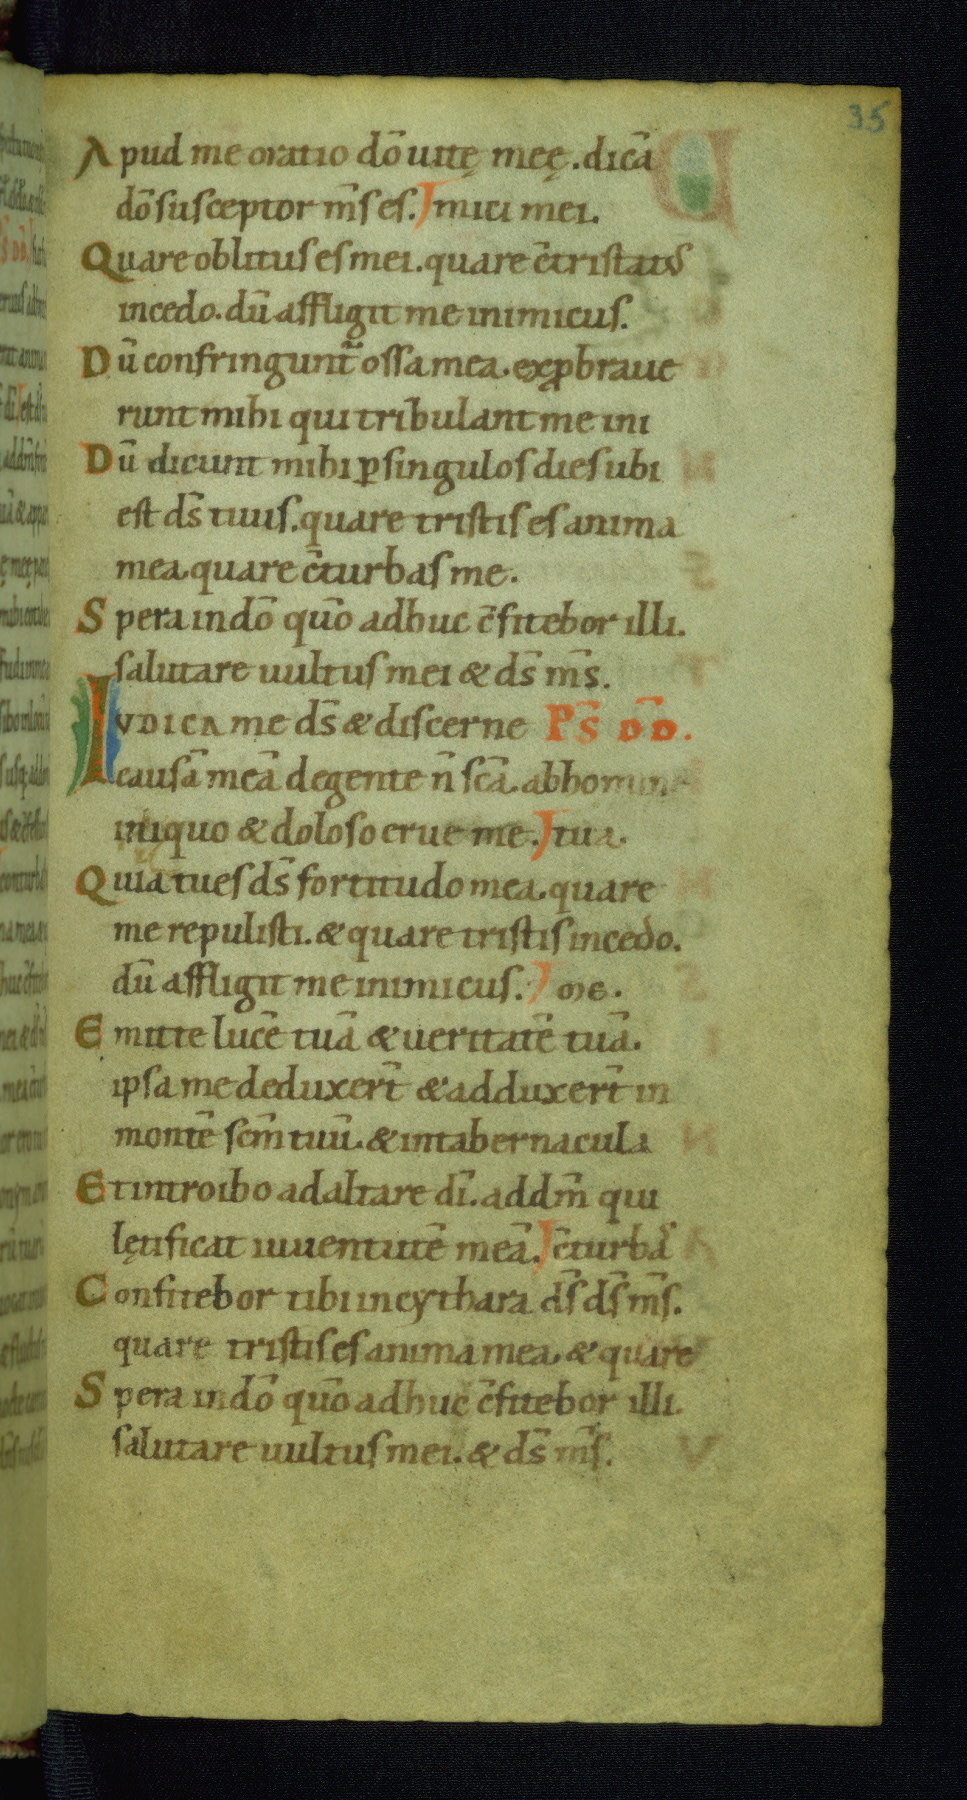 35
Apud me oratio dō uitę meę. dicā
dō susceptor m̄s es. mici mei.
Quare oblitus es mei. quare c̄tristatus
incedo. dū affligit me inimicus.
Dū confringunt̄ ossa mea. exprobraue
runt mihi qui tribulant me ini
Dū dicunt mihi ꝑ singulos dies ubi
est ds̄ tuus. quare tristis es anima
mea quare c̄turbas me.
Spera in dō quō adhuc c̄fitebor illi.
salutare uultus mei & ds̄ m̄s.
IVDICA me ds̄ & discerne Ps̄ DD̄.
causā meā de gente n̄ sc̄a. ab homine
iniquo & doloso erue me. tua.
Quia tu es ds̄ fortitudo mea. quare
me repulisti. & quare tristis incedo.
dū affligit me inimicus. me.
Emitte lucē tuā & ueritatē tuā.
ipsa me deduxer̄t & adduxer̄t in
montē sc̄m tuū. & in tabernacula
Et introibo ad altare dī. ad dm̄ qui
lętificat iuuentutē meā. c̄turbā
Confitebor tibi in cythara ds̄ ds̄ m̄s.
quare tristis es anima mea. & quare
Spera in dō quō adhuc c̄fitebor illi.
salutare uultus mei. & ds̄ m̄s.